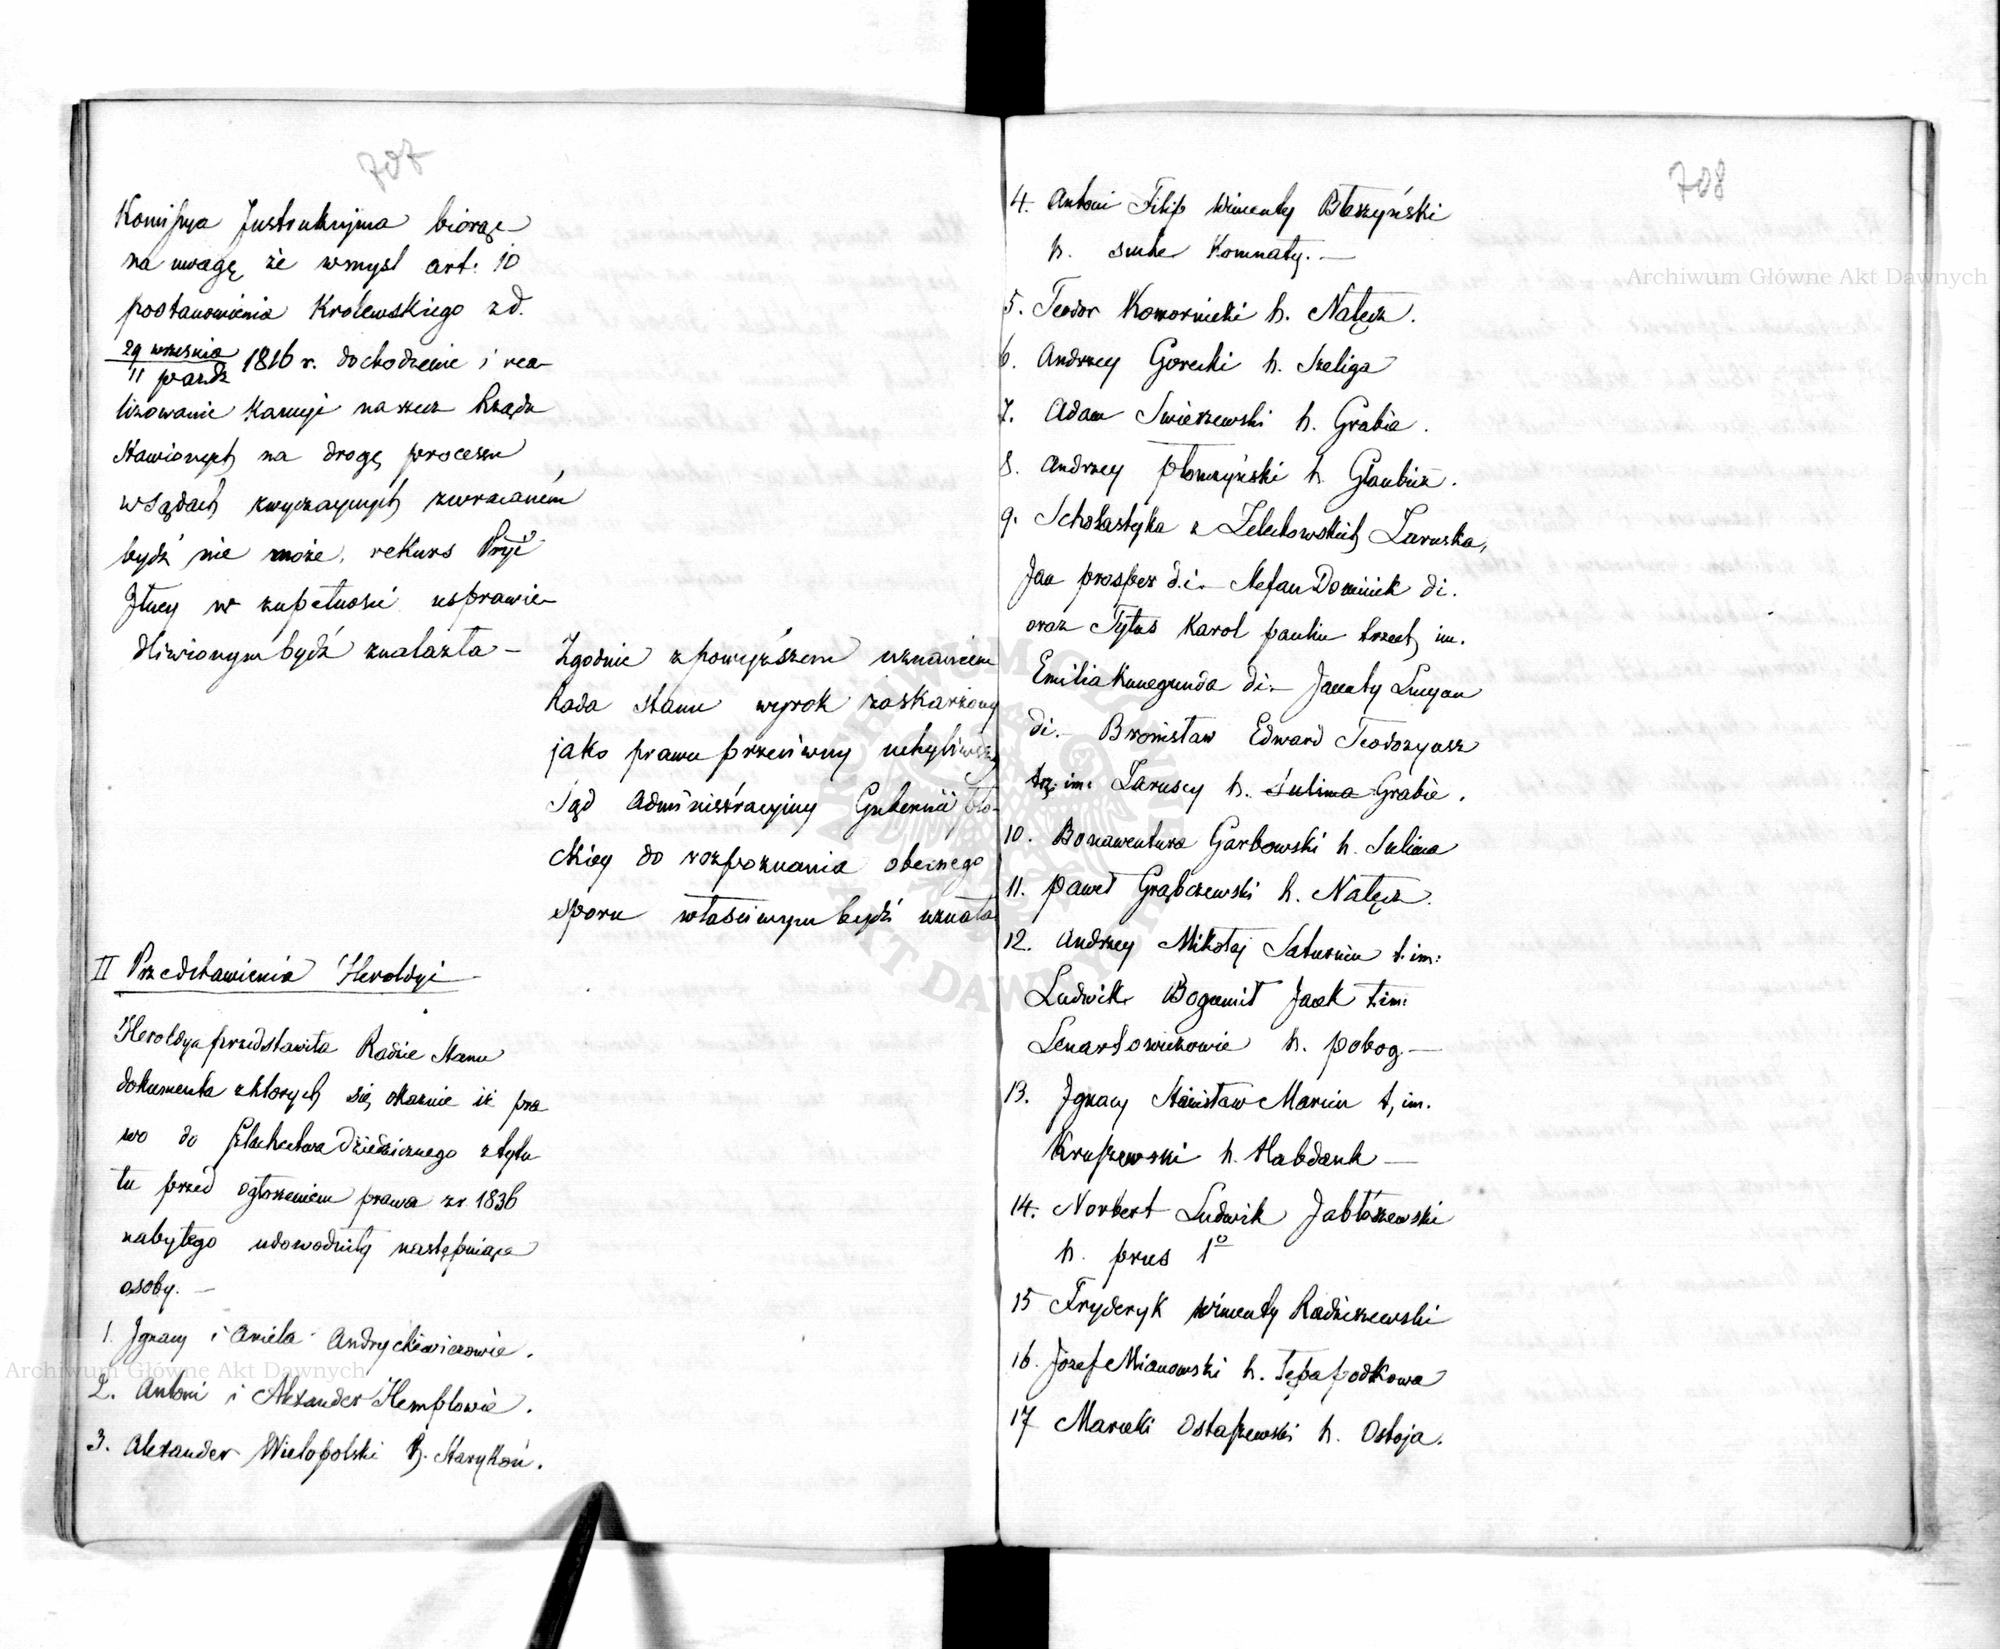 707
Komissya Instrukcyjna biorąc
na uwagę że wmysl art: 10
postanowienia Krolewskiego zd.
29 września
11 pazdz 1816 r. dochodzenie i rea
lizowanie Kaucyi na rzecz Rządu
stawionych na drogę processu
w Sądach zwyczaynych zwracanem
bydź nie może, rekurs
w zupełności usprawie
dliwionym bydź znalazła –
Zgodnie z powyższem uznaniem
Rada Stanu wyrok zaskarżony
jako prawu przeciwny uchyliwszy
Sąd Administracyjny Gubernii Pło-
ckiey do rozpoznania obecnego
sporu właściwym bydź uznała
II Przedstawienia Heroldyi
Heroldya przedstawiła Radzie Stanu
dokumenta z ktorych się okazuie iż pra
wo do szlachectwa dziedzicznego z tytu
łu przed ogłoszeniem prawa zr. 1836
nabytego udowodniły następuiące
osoby. –
1. Ignacy i Aniela Andrychiewiczowie.
2. Antoni i Alexander Hemplowie.
3. Alexander Wielopolski h. Starykoń.
708
4. Antoni Filip Wincenty Błeszyński
h. suche Komnaty. –
5. Teodor Komornicki h. Nałęcz.
6. Andrzey Gorecki h. Szeliga
7. Adam Swieszewski h. Grabie.
8. Andrzey Płonczyński h. Glaubicz.
9. Scholastyka z Zelechowskich Zaruska,
Jan prosper d.i. – Stefan Dominik di.
oraz Tytus Karol paulin trzech im.
Emilia Kunegunda di. – Jacenty Lucyan
di. – Bronisław Edward Teodozyusz
trz. im: Zaruscy h. Sulima Grabie.
10. Bonawentura Garbowski h. Sulima
11. paweł Grąbczewski h. Nałęcz.
12. Andrzey Mikołaj Saturnin t. im:
Ludwik Bogumił Jacek t. im:
Lenartowiczowie h. pobog –
13. Ignacy Stanisław Marcin t, im.
Kruszewski h. Habdank –
14. Norbert Ludwik Jabłoszewski
h. prus 1º
15 Fryderyk Wincenty Radziszewski
16. Jozef Mianowski h. Tępa podkowa
17 Marcelli Ostaszewski h. Ostoja.
Archiwum Główne Akt Dawnych
Archiwum Główne Akt Dawnych